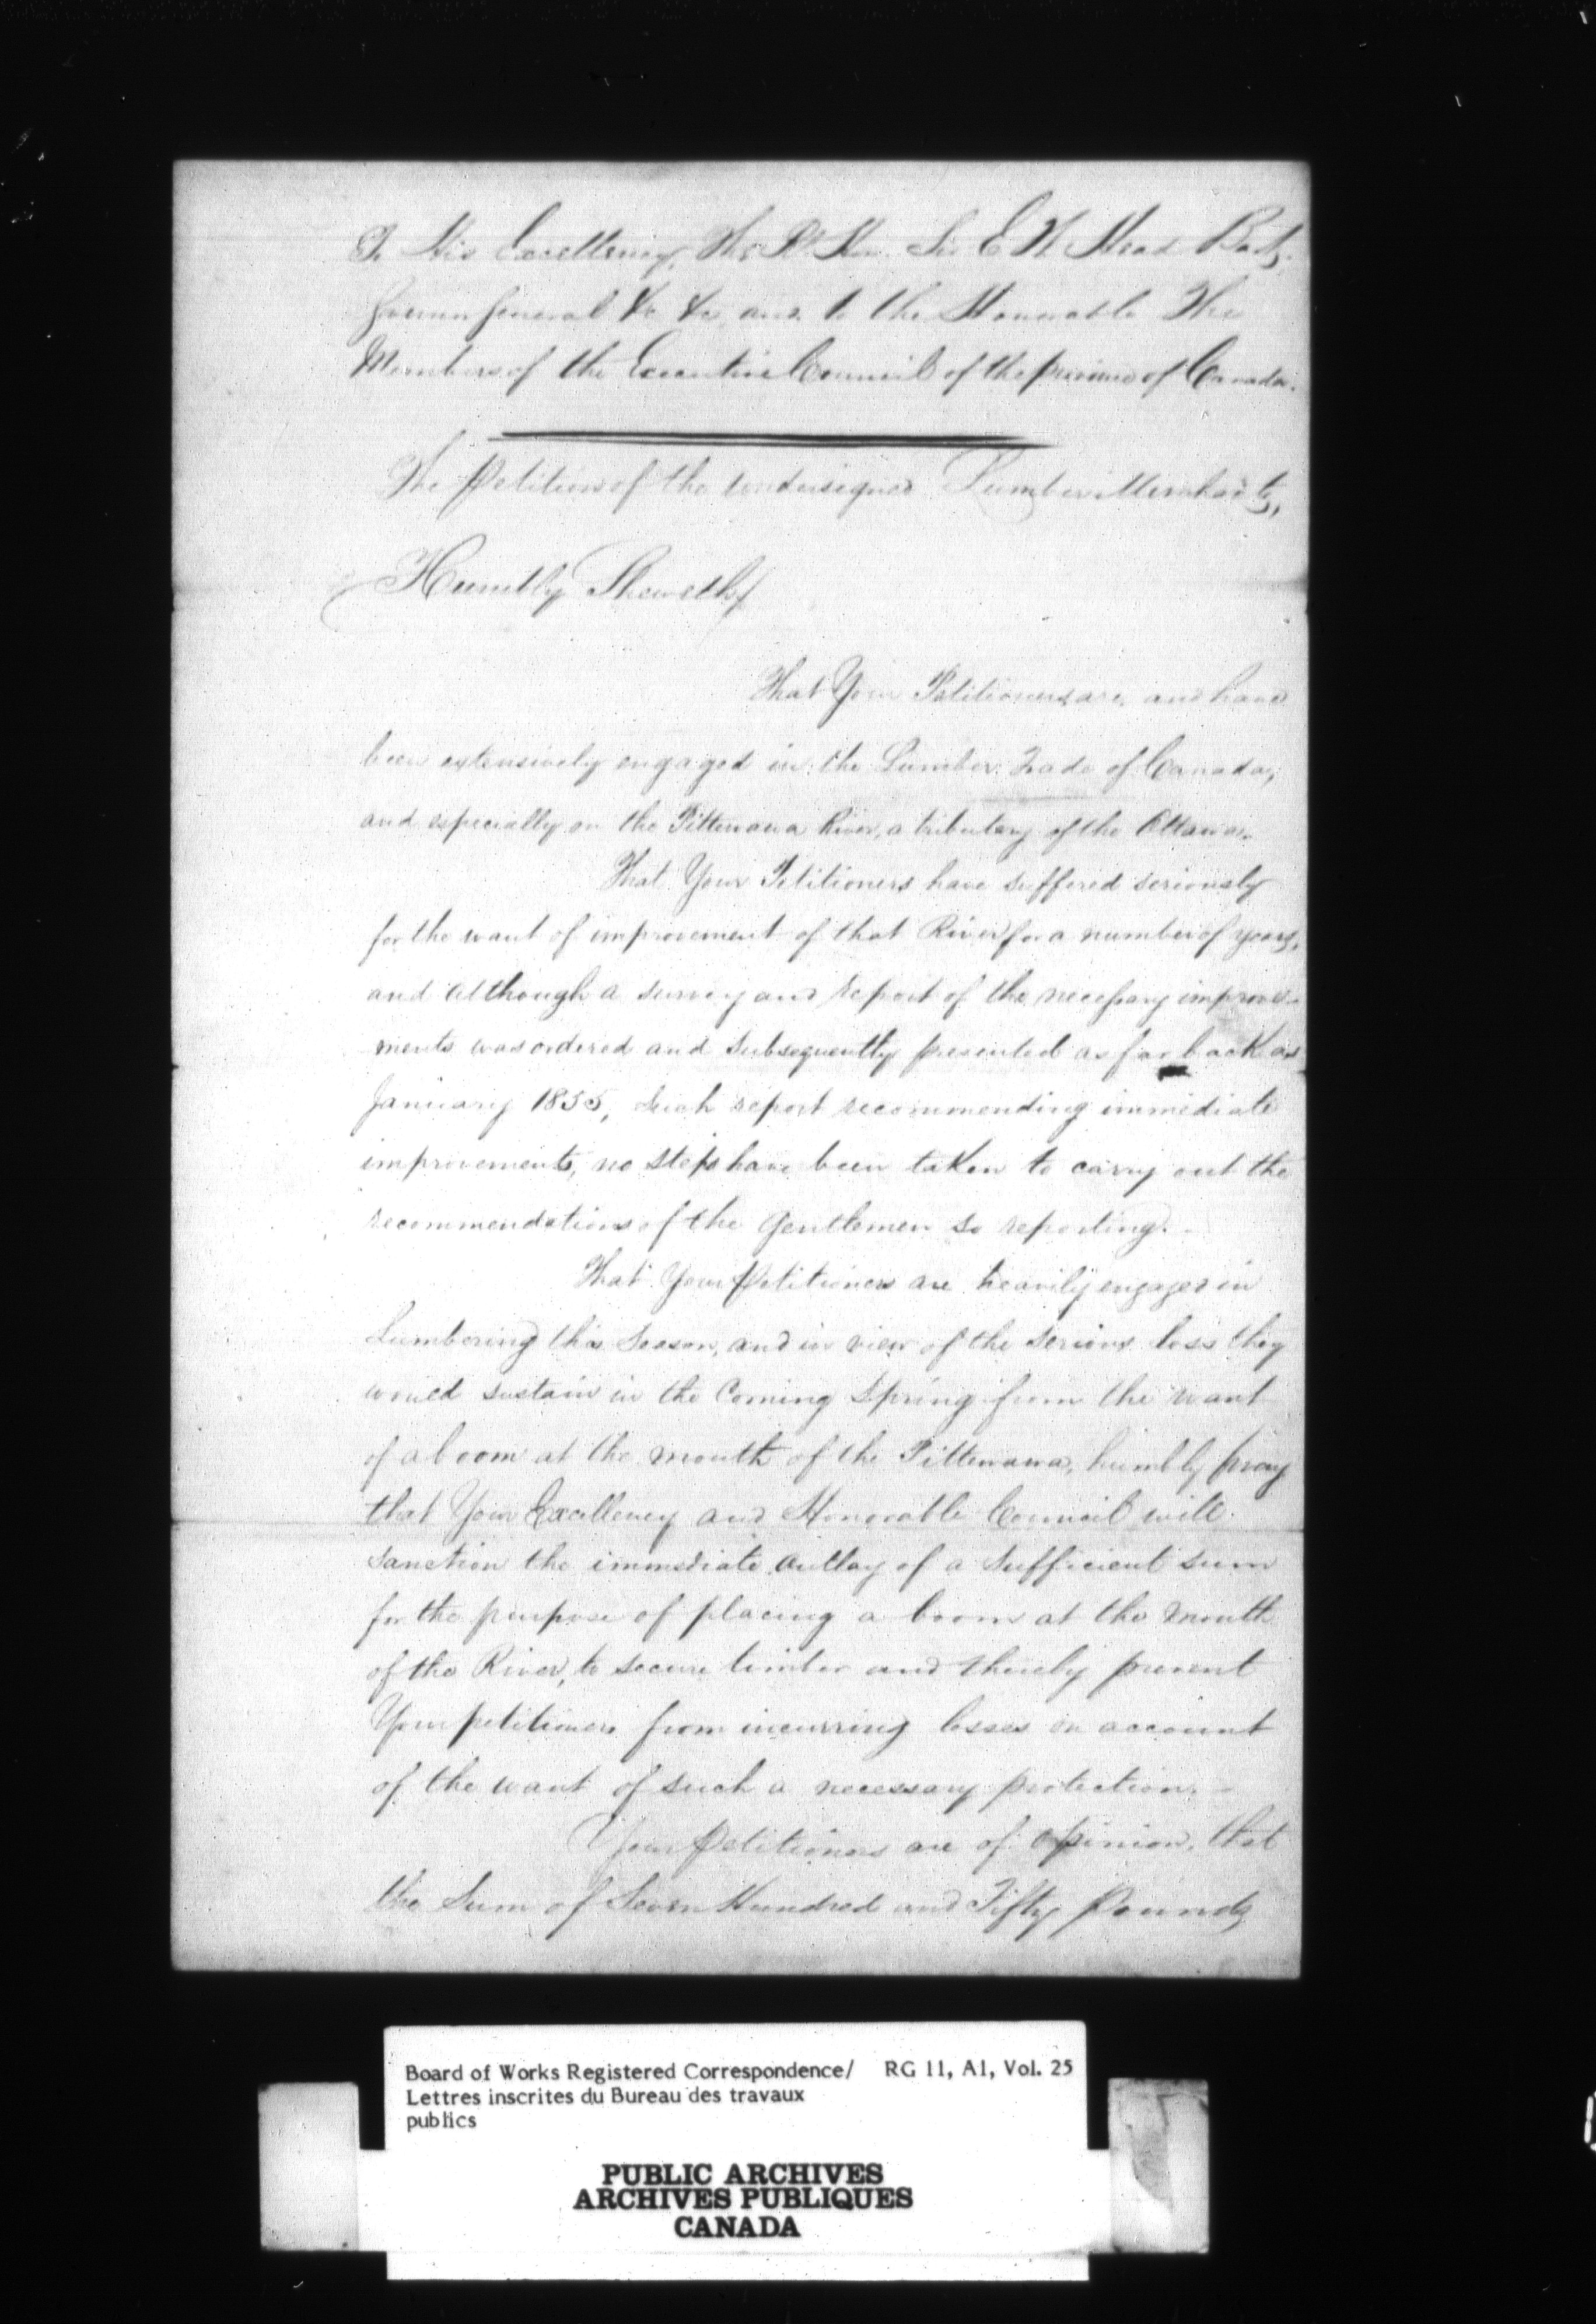 To His Excellency, The Rt Hon. Sir E W Head Bart,
Governor General &c &c, and to the Honorable The
Members of the Executive Council of the province of Canada.
The Petition of the undersigned Lumber Merchants,
Humbly Sheweth;
That Your Petitioners are, and have
been extensively engaged in the Lumber Trade of Canada,
and especially on the Pittewawa River, a tributary of the Ottawa.
That Your Petitioners have suffered seriously
for the want of improvement of that River for a number of years,
and although a survey and report of the necessary improve-
ments was ordered and subsequently presented as far back as
January 1855, such report recommending immediate
improvements, no steps have been taken to carry out the
recommendations of the Gentlemen so reporting.
That Your Petitioners are heavily engaged in
Lumbering this Season, and in view of the serious loss they
would sustain in the Coming Spring from the want
of a boom at the mouth of the Pittewawa, humbly pray
that Your Excellency and Honorable Council will
sanction the immediate outlay of a sufficient sum
for the purpose of placing a boom at the mouth
of the River, to secure timber and thereby prevent
Your petitioners from incurring losses on account
of the want of such a necessary protection.
Your Petitioners are of opinion, that
the Sum of Seven Hundred and Fifty Pounds
Board of Works Registered Correspondence/ RG 11, A1, Vol. 25
Lettres inscrites du Bureau des travaux
publics
PUBLIC ARCHIVES
ARCHIVES PUBLIQUES
CANADA